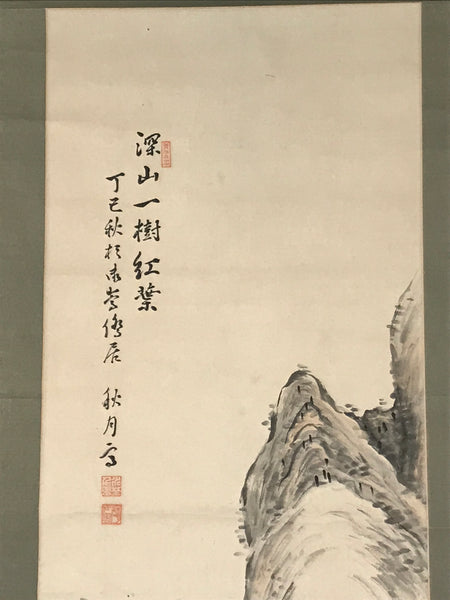 深山一樹紅葉
丁巳秋於嵩僑居 秋月写